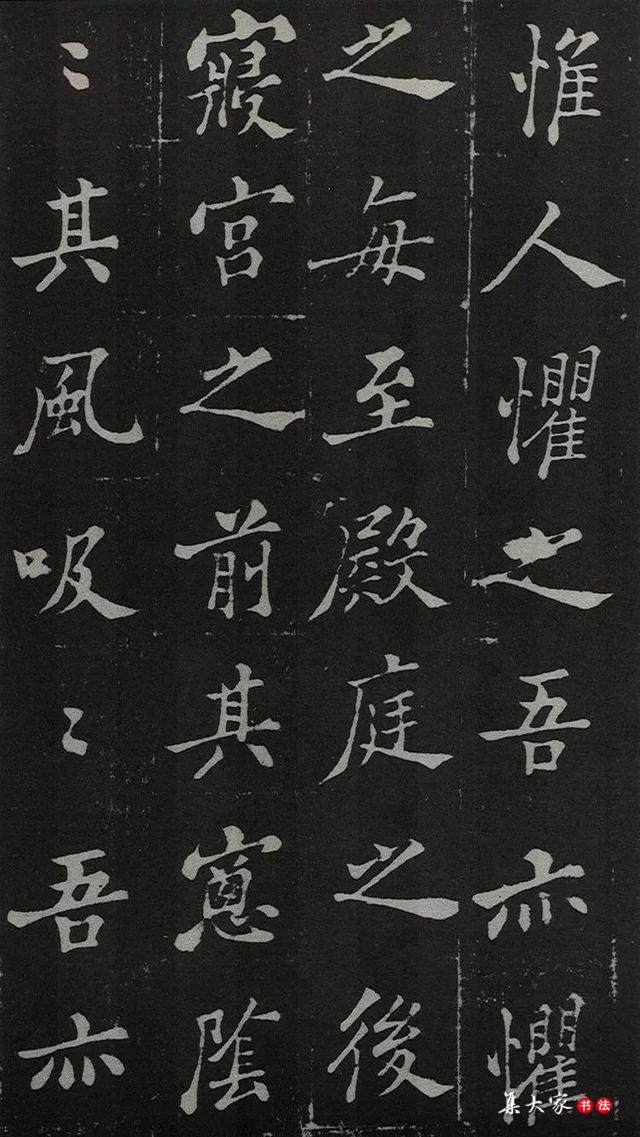 惟人懼之吾亦懼
之每至殿庭之後
寢宮之前其窻陰
〻其風吸〻吾亦
集大家书法